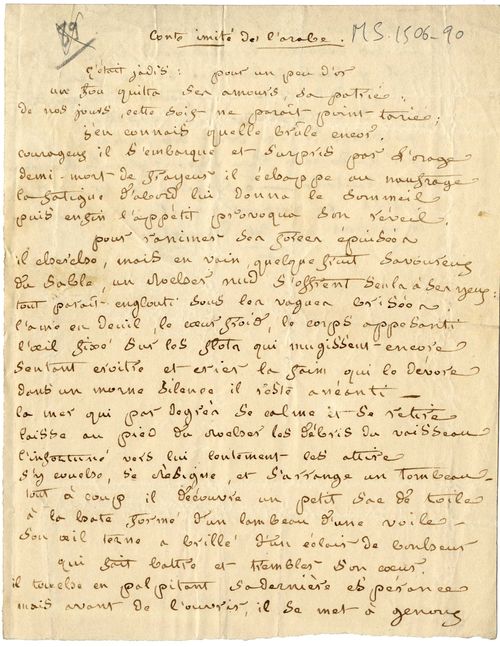 89
MS. 1506-90
Conte imité de l'arabe.
C'était jadis : pour un peu d'or
un fou quitta ses amours, sa patrie,
de nos jours, cette soif ne parait point tarie;
J'en connais quelle brûle encor.
courageux il s'embarque et surpris par l'orage
demi-mort de frayeur il échappe au naufrage
la fatigue d'abord lui donna le sommeil
puis enfin l'appétit provoqua son réveil.
pour ranimer ses forces épuisées
il cherche, mais en vain, quelque fruit savoureux
du sable, un rocher nud s'offrent seuls à ses yeux :
tout parait englouti sous les vagues brisées
l'ame en deuil, le cœur froid, le corps appesanti
l'œil fixé sur les flots qui mugissent encore
sentant croître et crier la faim qui le dévore
dans un morne silence il reste anéanti
la mer qui par degrés se calme et se retire
laisse au pied du rocher les débris du vaisseau
l'infortuné vers lui lentement les attire
s'y couche, se résigne, et s'arrange un tombeau
tout à coup il découvre un petit sac de toile
à la hate formé d'un lambeau d'une voile
son œil terne a brillé d'un éclair de bonheur
qui fait battre et trembler son cœur.
il touche en palpitant sa dernière espérance
mais avant de l'ouvrir, il se met à genoux